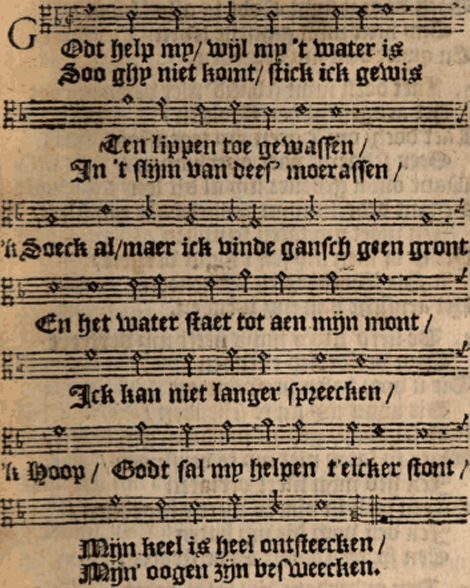 GOdt help my/ wijl my 't water is
Soo ghy niet komt/ stick ick gewis
Ten lippen toe gewassen /
In 't slijm van dees' moerassen /
'k Soeck al/maer ick vinde gansch geen gront
En het water staet tot aen mijn mont /
Ick kan niet langer spreecken /
'k Hoop / Godt sal my helpen t'elcker stont /
Mijn keel is heel ontsteecken /
Mijn' oogen zijn besweecken.